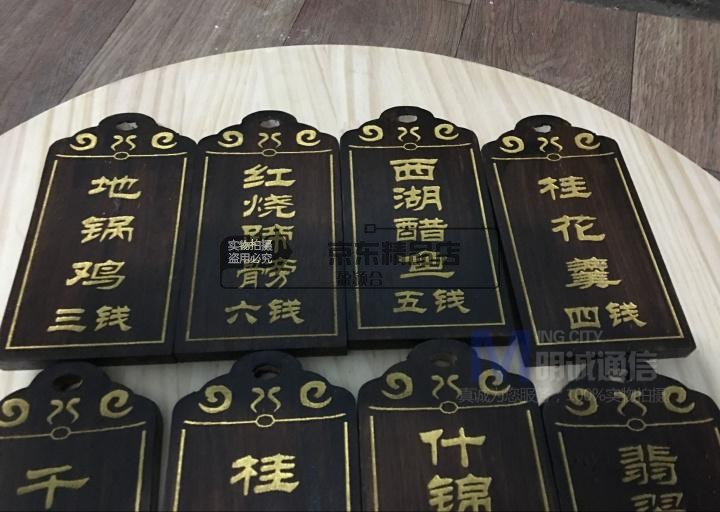 地锅鸡
三钱
红烧蹄髈
六钱
西湖醋鱼
五钱
桂花羹
四钱
千
桂
什锦
翡翠
实物拍摄
盗用必究
京东精品店
MING CITY
明诚通信
真诚为您服务，100%实物拍摄